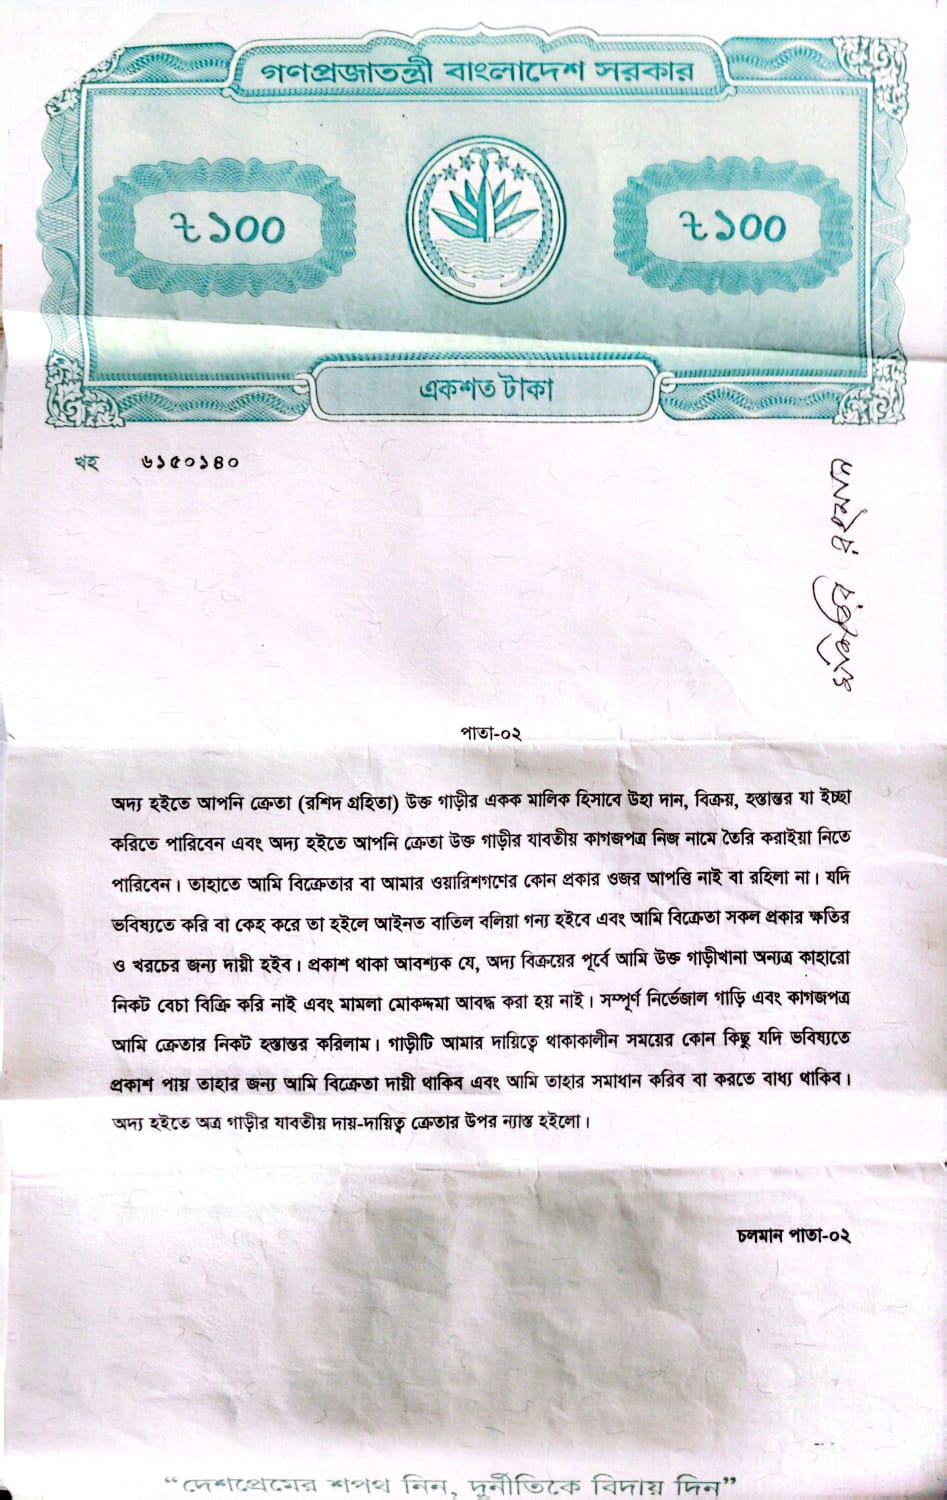 গণপ্রজাতন্ত্রী বাংলাদেশ সরকার
৳১০০ ৳১০০
একশত টাকা
খহ ৬১৫০১৪০
রহমান
পাতা-০২
অদ্য হইতে আপনি ক্রেতা (রশিদ গ্রহিতা) উক্ত গাড়ীর একক মালিক হিসাবে উহা দান, বিক্রয়, হস্তান্তর যা ইচ্ছা
করিতে পারিবেন এবং অদ্য হইতে আপনি ক্রেতা উক্ত গাড়ীর যাবতীয় কাগজপত্র নিজ নামে তৈরি করাইয়া নিতে
পারিবেন। তাহাতে আমি বিক্রেতার বা আমার ওয়ারিশগণের কোন প্রকার ওজর আপত্তি নাই বা রহিলা না। যদি
ভবিষ্যতে করি বা কেহ করে তা হইলে আইনত বাতিল বলিয়া গন্য হইবে এবং আমি বিক্রেতা সকল প্রকার ক্ষতির
ও খরচের জন্য দায়ী হইব। প্রকাশ থাকা আবশ্যক যে, অদ্য বিক্রয়ের পূর্বে আমি উক্ত গাড়ীখানা অন্যত্র কাহারো
নিকট বেচা বিক্রি করি নাই এবং মামলা মোকদ্দমা আবদ্ধ করা হয় নাই। সম্পূর্ণ নির্ভেজাল গাড়ি এবং কাগজপত্র
আমি ক্রেতার নিকট হস্তান্তর করিলাম। গাড়ীটি আমার দায়িত্বে থাকাকালীন সময়ের কোন কিছু যদি ভবিষ্যতে
প্রকাশ পায় তাহার জন্য আমি বিক্রেতা দায়ী থাকিব এবং আমি তাহার সমাধান করিব বা করতে বাধ্য থাকিব।
অদ্য হইতে অত্র গাড়ীর যাবতীয় দায়-দায়িত্ব ক্রেতার উপর ন্যাস্ত হইলো।
চলমান পাতা-০২
“দেশপ্রেমের শপথ নিন, দুর্নীতিকে বিদায় দিন”